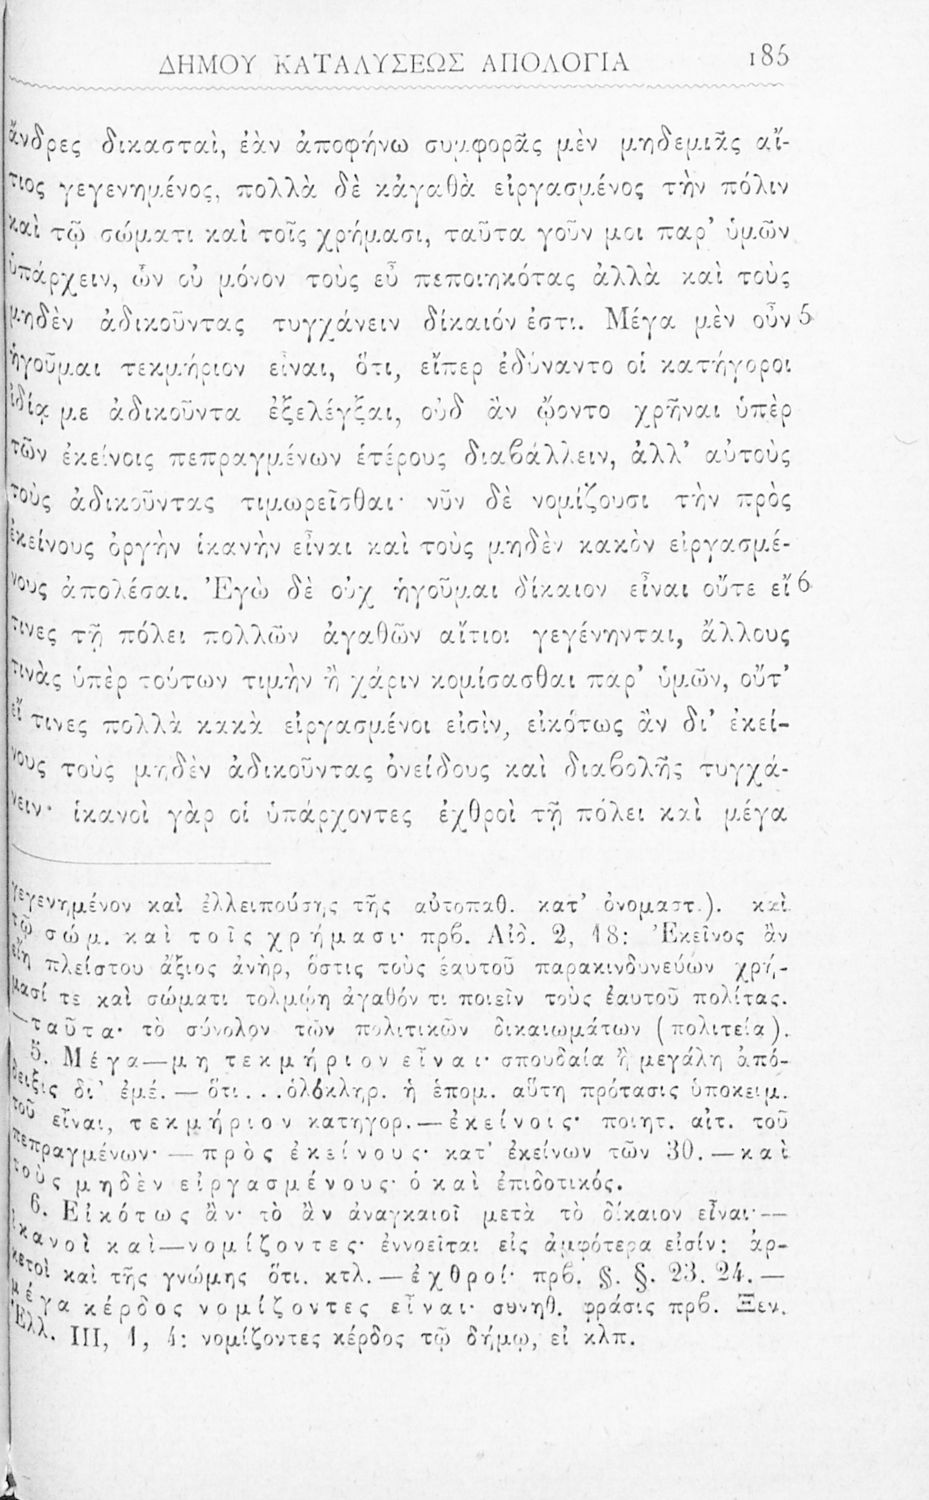 ΔΗΜΟΥ ΚΑΤΑΛΥΣΕΩΣ ΑΠΟΛΟΓΙΑ 185
ἄνδρες δικασταὶ, ἐὰν ἀποφήνω συμφορᾶς μὲν μηδεμιᾶς αἴ-
τιος γεγενημένος, πολλὰ δὲ κἀγαθὰ εἰργασμένος τὴν πόλιν
καὶ τῷ σώματι καὶ τοῖς χρήμασι, ταῦτα γοῦν μοι παρ’ ὑμῶν
ὑπάρχειν, ὧν οὐ μόνον τοὺς εὖ πεποιηκότας ἀλλὰ καὶ τοὺς
μηδὲν ἀδικοῦντας τυγχάνειν δίκαιόν ἐστι. Μέγα μὲν οὖν 5
ἡγοῦμαι τεκμήριον εἶναι, ὅτι, εἴπερ ἐδύναντο οἱ κατήγοροι
ἰδίᾳ με ἀδικοῦντα ἐξελέγξαι, οὐδ ἂν ᾤοντο χρῆναι ὑπὲρ
τῶν ἐκείνοις πεπραγμένων ἑτέρους διαβάλλειν, ἀλλ’ αὐτοὺς
τοὺς ἀδικοῦντας τιμωρεῖσθαι· νῦν δὲ νομίζουσι τὴν πρὸς
ἐκείνους ὀργὴν ἱκανὴν εἶναι καὶ τοὺς μηδὲν κακὸν εἰργασμέ-
νους ἀπολέσαι. Ἐγὼ δὲ οὐχ ἡγοῦμαι δίκαιον εἶναι οὔτε εἴ 6
τινες τῇ πόλει πολλῶν ἀγαθῶν αἴτιοι γεγένηνται, ἄλλους
τινὰς ὑπὲρ τούτων τιμὴν ἢ χάριν κομίσασθαι παρ’ ὑμῶν, οὔτ’
εἴ τινες πολλὰ κακὰ εἰργασμένοι εἰσὶν, εἰκότως ἂν δι’ ἐκεί-
νους τοὺς μηδὲν ἀδικοῦντας ὀνείδους καὶ διαβολῆς τυγχά-
νειν· ἱκανοὶ γὰρ οἱ ὑπάρχοντες ἐχθροὶ τῇ πόλει καὶ μέγα
γεγενημένον καὶ ἐλλειπούσης τῆς αὐτοπαθ. κατ’ ὀνομαστ.). καὶ
τῷ σώμ. καὶ τοῖς χρήμασι· πρβ. Αἰδ. 2, 18: Ἐκεῖνος ἂν
εἴη πλείστου ἄξιος ἀνὴρ, ὅστις τοὺς ἑαυτοῦ παρακινδυνεύων χρή-
μασί τε καὶ σώματι τολμῴη ἀγαθόν τι ποιεῖν τοὺς ἑαυτοῦ πολίτας.
—ταῦτα· τὸ σύνολον τῶν πολιτικῶν δικαιωμάτων (πολιτεία).
5. Μέγα—μη τεκμήριον εἶναι· σπουδαία ἢ μεγάλη ἀπό-
δειξις δι’ ἐμέ.— ὅτι...ὁλόκληρ. ἡ ἑπομ. αὕτη πρότασις ὑποκειμ.
τοῦ εἶναι, τεκμήριον κατηγορ.—ἐκείνοις· ποιητ. αἰτ. τοῦ
πεπραγμένων· — πρὸς ἐκείνους· κατ’ ἐκείνων τῶν 30.—καὶ
τοὺς μηδὲν εἰργασμένους· ὁ καὶ ἐπιδοτικός.
6. Εἰκότως ἂν· τὸ ἂν ἀναγκαιοῖ μετὰ τὸ δίκαιον εἶναι·—
ἱκανοὶ καὶ—νομίζοντες· ἐννοεῖται εἰς ἀμφότερα εἰσίν: ἀρ-
κετοὶ καὶ τῆς γνώμης ὅτι. κτλ.—ἐχθροί· πρβ. §. §. 23. 24.—
μέγα κέρδος νομίζοντες εἶναι· συνηθ. φράσις πρβ. Ξεν.
Ἑλλ. III, 1, 4: νομίζοντες κέρδος τῷ δήμῳ, εἰ κλπ.